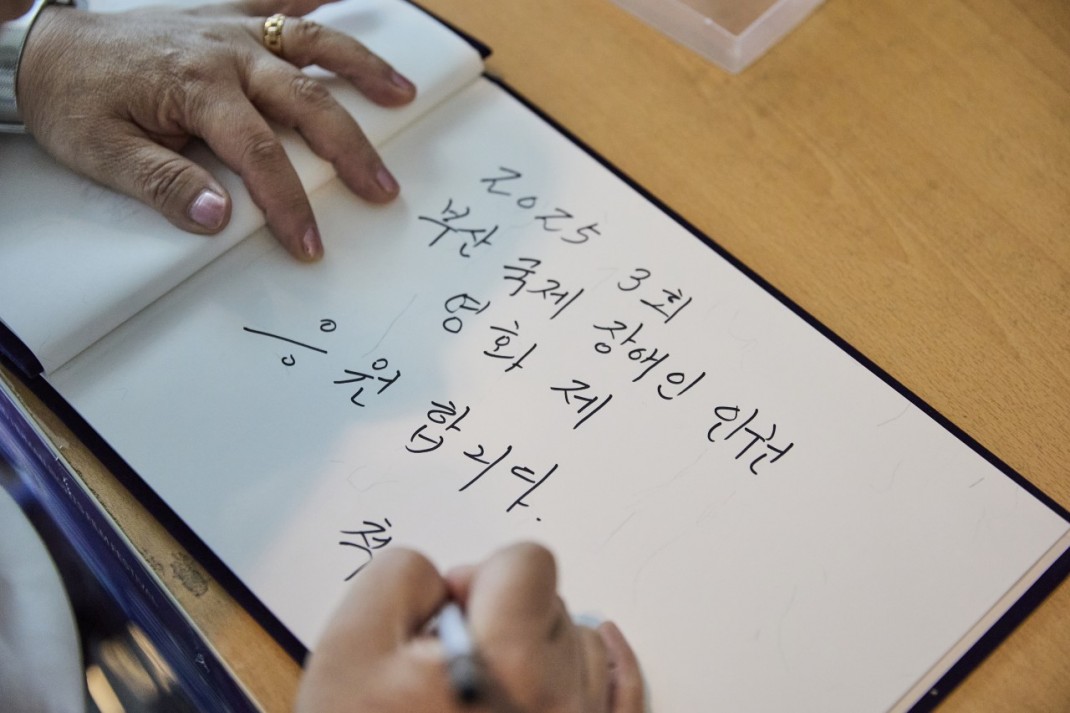 2025 3회
부산 국제 장애인 인권
영화제
응원 합니다.
축